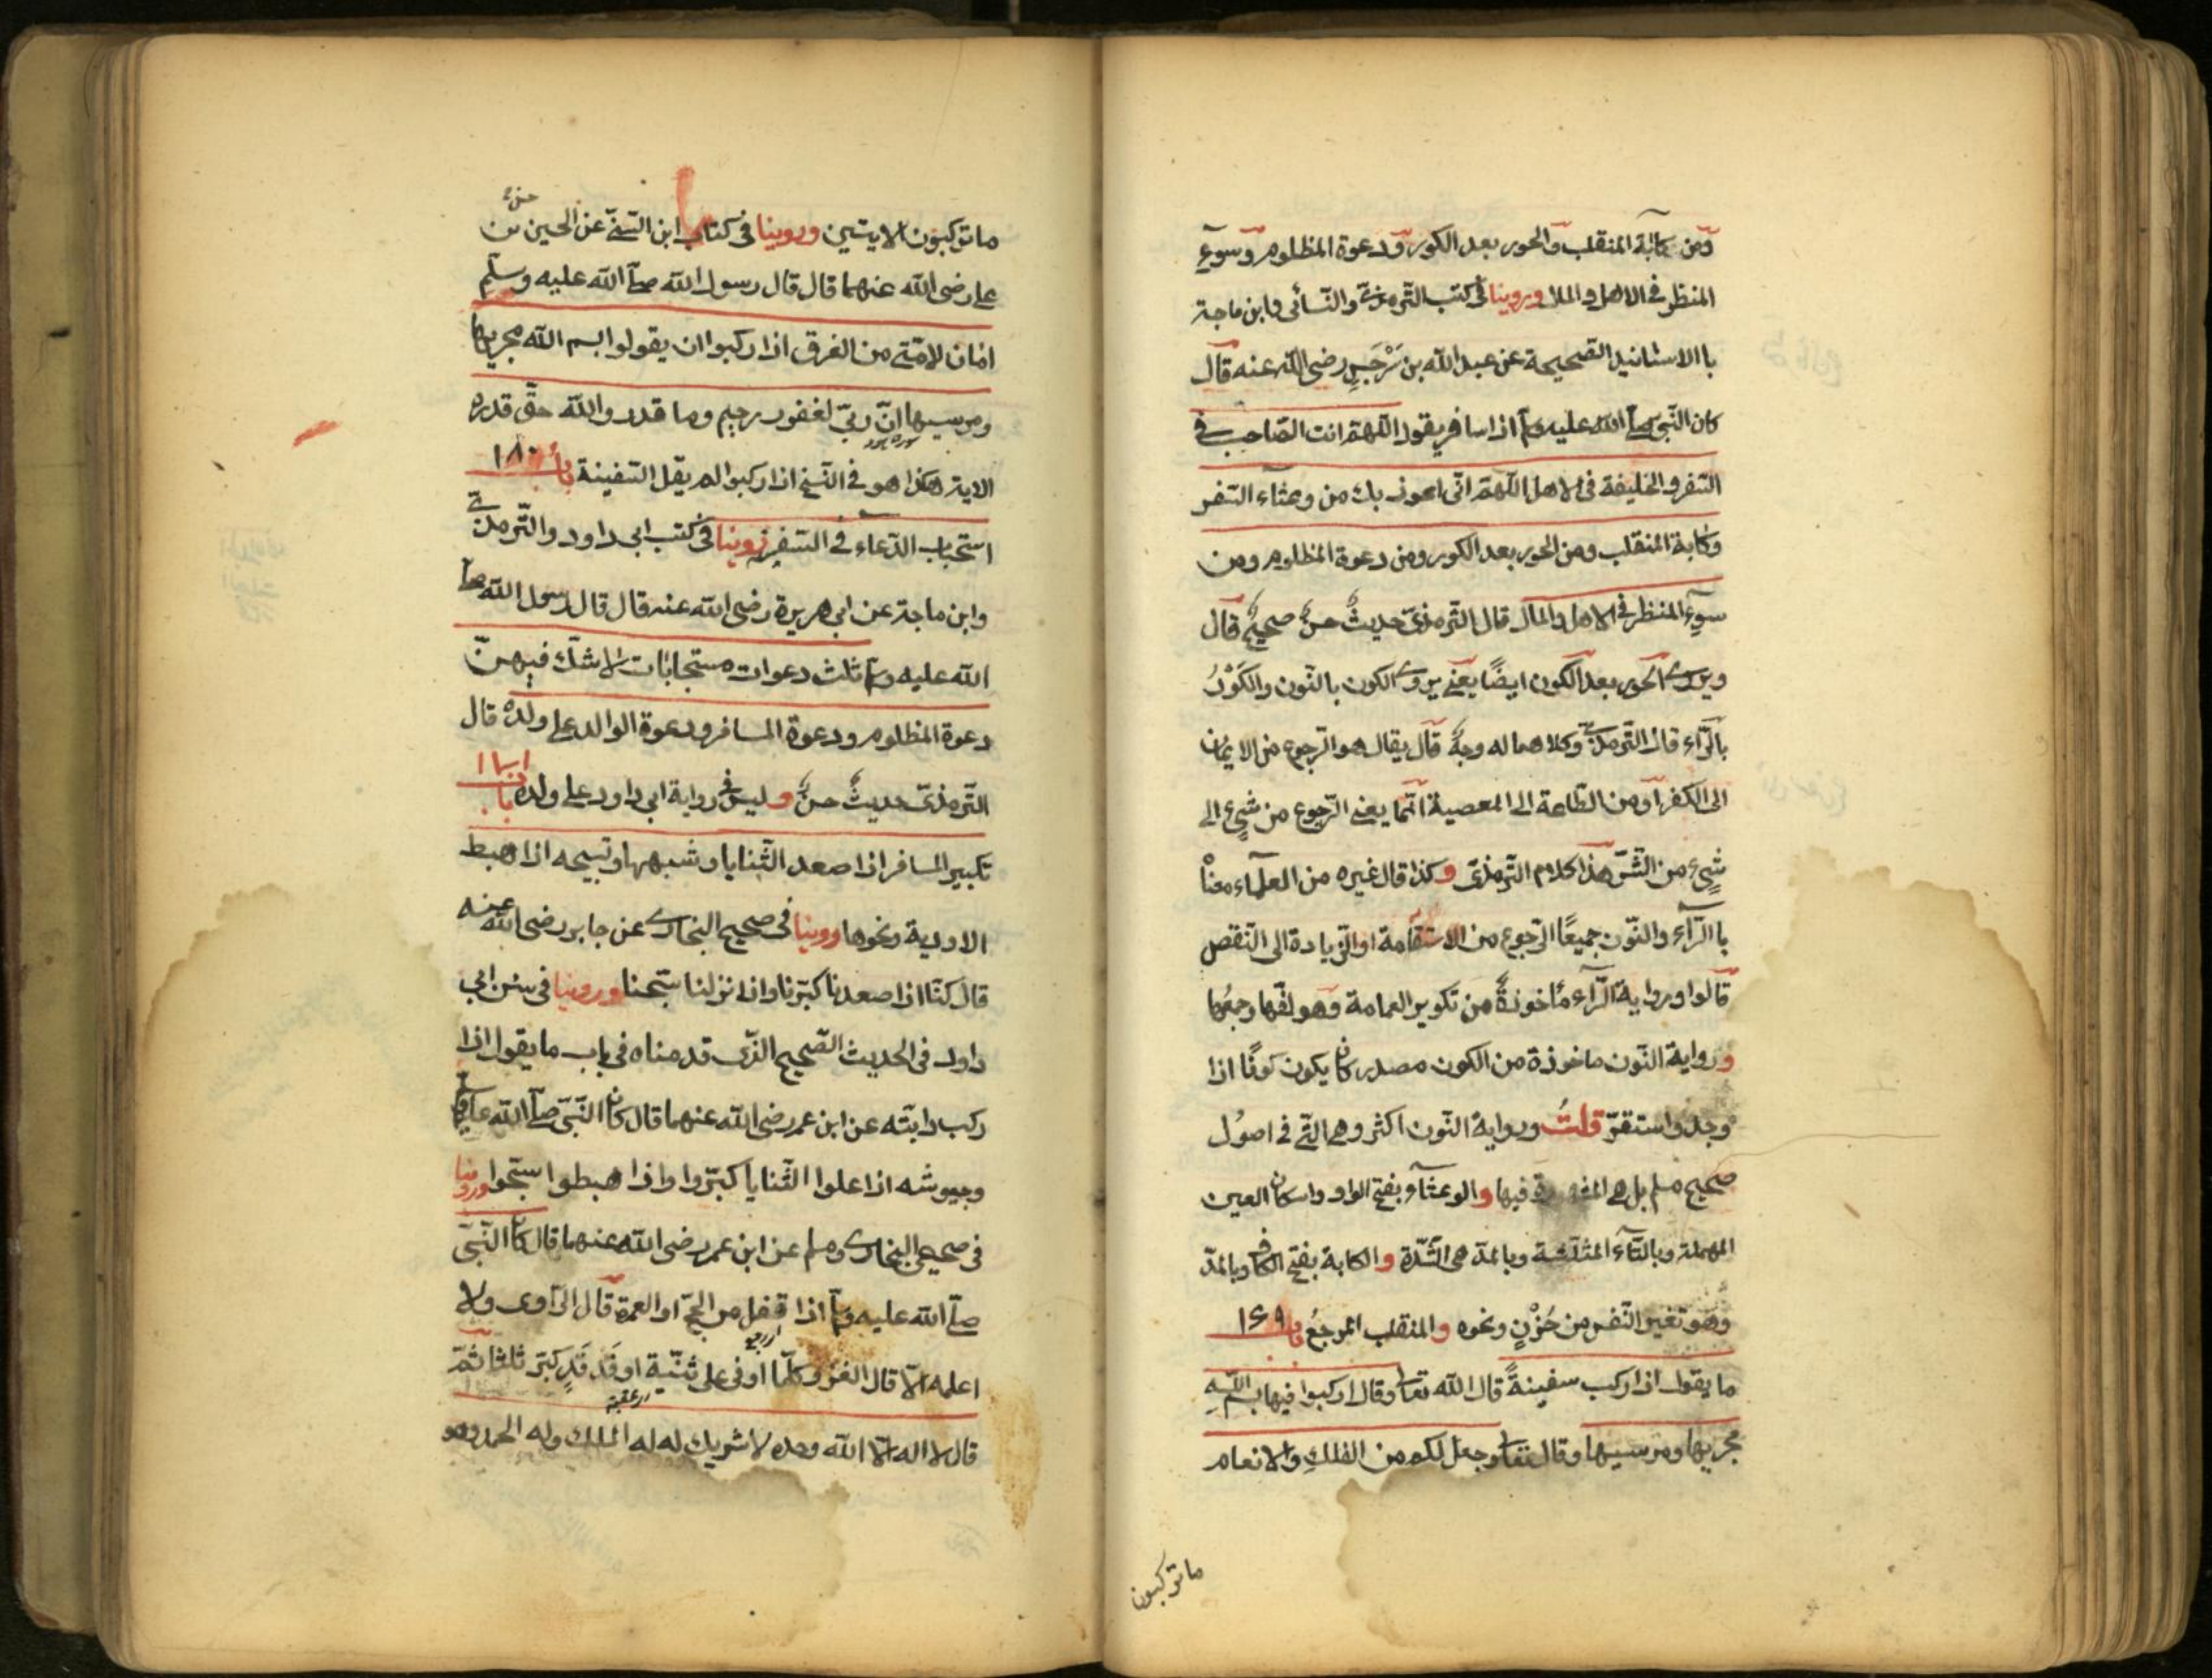 ومن كآبة المنقلب والحور بعد الكور ودعوة المظلوم وسوء
المنظر في الاهل والمال وروينا في كتب الترمذي والنسائي وابن ماجة
باالاسانيد الصحيحة عن عبد الله بن سَرْجَسٍ رضي الله عنه قال
كان النبي صلى الله عليه وسلم اذا سافر يقول اللهم انت الصاحب في
السفر والخليفة في الاهل اللهم اني اعوذ بك من وعثاء السفر
وكابة المنقلب ومن الحور بعد الكور ومن دعوة المظلوم ومن
سوء المنظر في الاهل والمال قال الترمذي حديثٌ حسنٌ صحيحٌ قال
ويروى الحور بعد الكون ايضًا يعني يروى الكون بالنون والكَوْرُ
بالراء قال الترمذي وكلاهما له وجهٌ قال يقال هو الرجوع من الايمان
الى الكفر او من الطاعة الى المعصية انما يعني الرجوع من شيء الى
شيء من الشر هذا كلام الترمذي وكذا قال غيره من العلماء معناه
باالراء والنون جميعًا الرجوع من الاستقامة او الزيادة الى النقص
قالوا ورواية الراء مأخوذةٌ من تكوير العمامة وهو لفها وجمعها
ورواية النون ماخوذة من الكون مصدر كان يكون كونًا اذا
وجد واستقرّ قلتُ ورواية النون اكثر وهي التي في اصول
صحيح مسلم بل هي المشهورة فيها والوعثاء بفتح الواو واسكان العين
المهملة وبالثاء المثلثة وبالمد هي الشدّة والكابة بفتح الكاف وبالمد
وهو تغير النفس من حُزْنٍ ونحوه والمنقلب المرجعُ باب ١٤٩
ما يقول اذا ركب سفينةً قال الله تعالى وقال اركبوا فيها بسم اللهِ
مجريها ومرسيها وقال تعالى وجعل لكم من الفلكِ والانعام
ماتركبون
ماتركبون الايتين وروينا في كتاب ابن السني عن الحسين بن
علي رضي الله عنهما قال قال رسول الله صلى الله عليه وسلم
امان لامتي من الغرق اذا ركبوا ان يقولوا بسم الله مجريها
ومرسيها انّ ربيّ لغفور رحيم وما قدروا الله حقّ قدره
سوره هود
الاية هكذا هو في النسخ اذا ركبوا لم يقل السفينة باب ١٨٠
استحباب الدعاء في السفر روينا في كتب ابي داود والترمذي
وابن ماجة عن ابي هريرة رضي الله عنه قال قال رسول الله صلى
الله عليه وسلم ثلث دعوات مستجابات لاشك فيهنّ
دعوة المظلوم ودعوة المسافر ودعوة الوالد على ولده قال
الترمذي حديثٌ حسنٌ وليس في رواية ابي داود على ولده باب ١٨١
تكبير المسافر اذا صعد الثنايا وشبهها وتسبيحه اذا هبط
الاودية ونحوها روينا في صحيح البخاري عن جابر رضي الله عنه
قال كنّا اذا صعدنا كبّرنا واذا نزلنا سبّحنا وروينا في سنن ابي
داود في الحديث الصحيح الذي قدمناه في باب مايقول اذا
ركب دابته عن ابن عمر رضي الله عنهما قال كان النبيّ صلى الله عليه وسلم
وجيوشه اذا علوا الثنايا كبّروا واذا هبطوا سبّحوا وروينا
في صحيحي البخاري ومسلم عن ابن عمر رضي الله عنهما قال كان النبيّ
صلى الله عليه وسلم اذا قفل من الحجّ او العمرة قال الراوي ولا
اعلمه الاّ قال الغزو كلّما اوفى على ثنيّة او فَدفَدٍ كبّر ثلثا ثمّ
قال لا اله الاّ الله وحده لا شريك له له الملك وله الحمد وهو